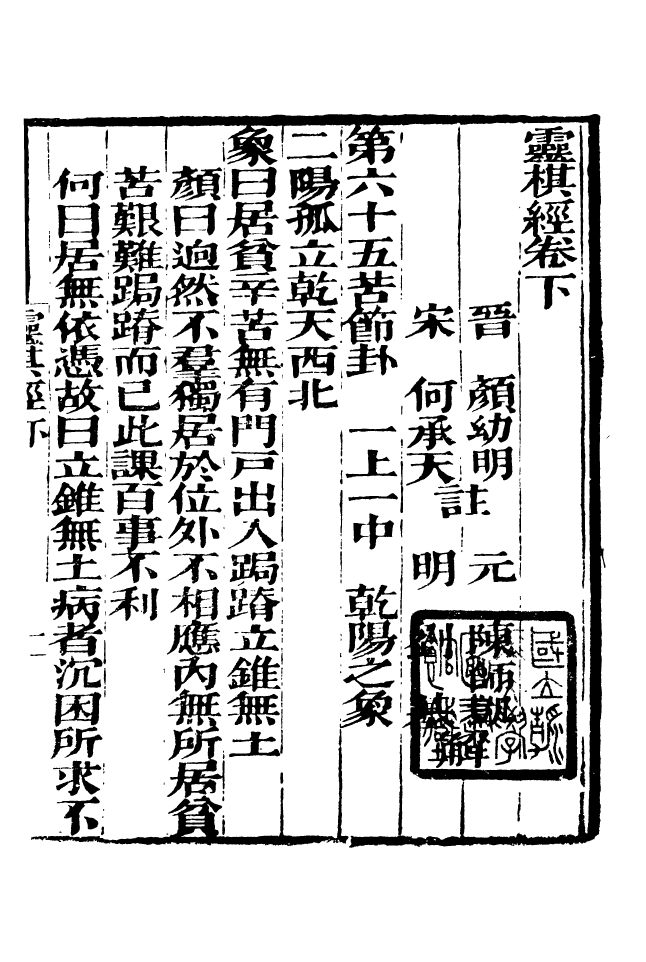 靈棋經卷下
晉　顏幼明　元　陳師凱
宋　何承天註　明　劉基解
第六十五苦節卦　一上一中　乾陽之象
二陽孤立乾天西北
象曰居貧辛苦無有門戸出入跼蹐立錐無土
顏曰逈然不羣獨居於位外不相應内無所居貧
苦艱難跼蹐而已此課百事不利
何曰居無依憑故曰立錐無土病者沉困所求不
靈棋經下